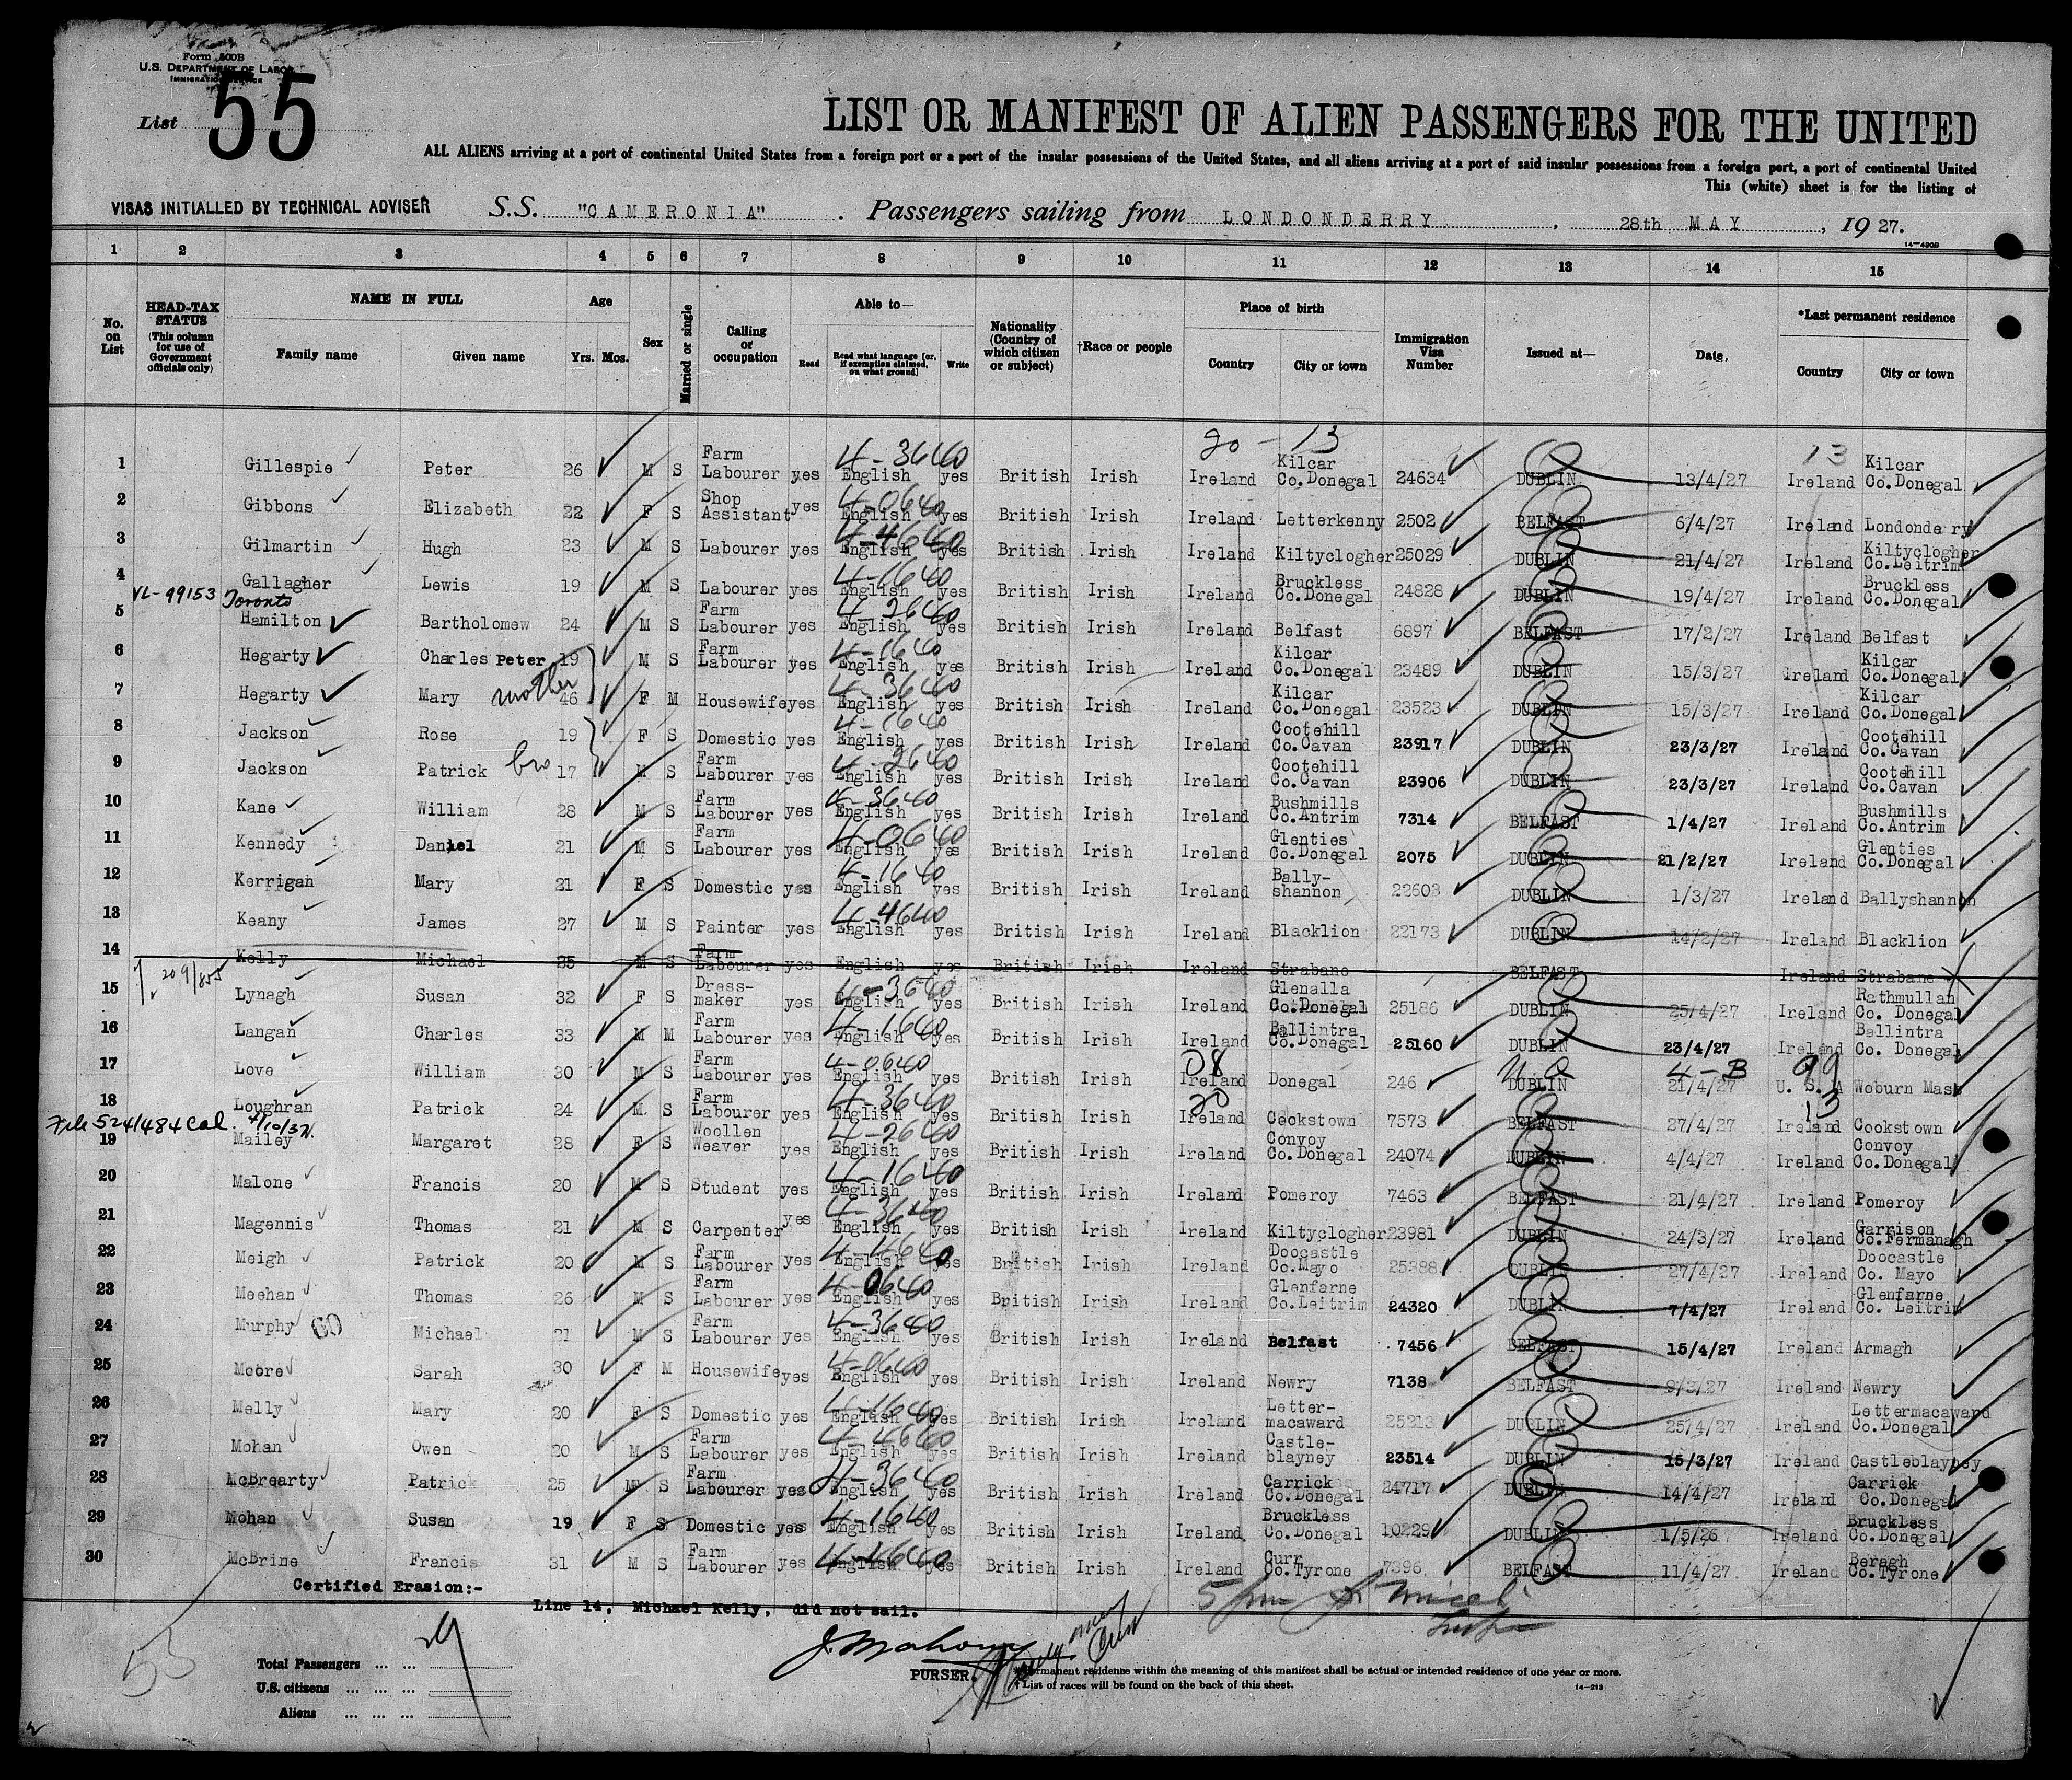 Form 500B
U.S. DEPARTMENT OF LABOR
IMMIGRATION SERVICE
List 55
LIST OR MANIFEST OF ALIEN PASSENGERS FOR THE UNITED
ALL ALIENS arriving at a port of continental United States from a foreign port or a port of the insular possessions of the United States, and all aliens arriving at a port of said insular possessions from a foreign port, a port of continental United
This (white) sheet is for the listing of
VISAS INITIALLED BY TECHNICAL ADVISER S.S. "CAMERONIA" . Passengers sailing from LONDONDERRY , 28th MAY , 19 27.
14-430B
1 2 3 4 5 6 7 8 9 10 11 12 13 14 15
No. on List HEAD-TAX STATUS (This column for use of Government officials only) NAME IN FULL Family name Given name Age Yrs. Mos. Sex Married or single Calling or occupation Able to— Read Read what language [or, if exemption claimed, on what ground] Write Nationality (Country of which citizen or subject) †Race or people Place of birth Country City or town Immigration Visa Number Issued at— Date. *Last permanent residence Country City or town
20 - 13 13
1 Gillespie Peter 26 M S Farm Labourer yes 4-3640 English yes British Irish Ireland Kilcar Co.Donegal 24634 DUBLIN 13/4/27 Ireland Kilcar Co.Donegal
2 Gibbons Elizabeth 22 F S Shop Assistant yes 4-0640 English yes British Irish Ireland Letterkenny 2502 BELFAST 6/4/27 Ireland Londonde ry
3 Gilmartin Hugh 23 M S Labourer yes 4-4640 English yes British Irish Ireland Kiltyclogher 25029 DUBLIN 21/4/27 Ireland Kiltyclogher Co.Leitrim
4 Gallagher Lewis 19 M S Labourer yes 4-1640 English yes British Irish Ireland Bruckless Co.Donegal 24828 DUBLIN 19/4/27 Ireland Bruckless Co.Donegal
VL-99153 Toronto
5 Hamilton Bartholomew 24 M S Farm Labourer yes 4-2640 English yes British Irish Ireland Belfast 6897 BELFAST 17/2/27 Ireland Belfast
6 Hegarty Charles Peter 19 M S Farm Labourer yes 4-1640 English yes British Irish Ireland Kilcar Co.Donegal 23489 DUBLIN 15/3/27 Ireland Kilcar Co.Donegal
7 Hegarty Mary mother 46 F M Housewife yes 4-3640 English yes British Irish Ireland Kilcar Co.Donegal 23523 DUBLIN 15/3/27 Ireland Kilcar Co.Donegal
8 Jackson Rose 19 F S Domestic yes 4-1640 English yes British Irish Ireland Cootehill Co.Cavan 23917 DUBLIN 23/3/27 Ireland Cootehill Co.Cavan
9 Jackson Patrick bro 17 M S Farm Labourer yes 4-2640 English yes British Irish Ireland Cootehill Co.Cavan 23906 DUBLIN 23/3/27 Ireland Cootehill Co.Cavan
10 Kane William 28 M S Farm Labourer yes 4-3640 English yes British Irish Ireland Bushmills Co.Antrim 7314 BELFAST 1/4/27 Ireland Bushmills Co.Antrim
11 Kennedy Daniel 21 M S Farm Labourer yes 4-0640 English yes British Irish Ireland Glenties Co.Donegal 2075 DUBLIN 21/2/27 Ireland Glenties Co.Donegal
12 Kerrigan Mary 21 F S Domestic yes 4-1640 English yes British Irish Ireland Bally-shannon 22603 DUBLIN 1/3/27 Ireland Ballyshannon
13 Keany James 27 M S Painter yes 4-4640 English yes British Irish Ireland Blacklion 22173 DUBLIN 14/2/27 Ireland Blacklion
14 Kelly Michael 25 M S Farm Labourer yes English yes British Irish Ireland Strabane BELFAST Ireland Strabane
209/855
15 Lynagh Susan 32 F S Dress-maker yes 4-3640 English yes British Irish Ireland Glenalla Co.Donegal 25186 DUBLIN 25/4/27 Ireland Rathmullan Co. Donegal
16 Langan Charles 33 M M Farm Labourer yes 4-1640 English yes British Irish Ireland Ballintra Co.Donegal 25160 DUBLIN 23/4/27 Ireland Ballintra Co. Donegal
17 Love William 30 M S Farm Labourer yes 4-0640 English yes British Irish 08 Ireland Donegal 246 DUBLIN 4-B 21/4/27 99 U. S. A Woburn Mass
18 Loughran Patrick 24 M S Farm Labourer yes 4-3640 English yes British Irish 20 Ireland Cookstown 7573 BELFAST 27/4/27 13 Ireland Cookstown
File 524/484 Cal. 4/10/37.
19 Mailey Margaret 28 F S Woollen Weaver yes 4-2640 English yes British Irish Ireland Convoy Co.Donegal 24074 DUBLIN 4/4/27 Ireland Convoy Co.Donegal
20 Malone Francis 20 M S Student yes 4-1640 English yes British Irish Ireland Pomeroy 7463 BELFAST 21/4/27 Ireland Pomeroy
21 Magennis Thomas 21 M S Carpenter yes 4-3640 English yes British Irish Ireland Kiltyclogher 23981 DUBLIN 24/3/27 Ireland Garrison Co.Fermanagh
22 Meigh Patrick 20 M S Farm Labourer yes 4-4640 English yes British Irish Ireland Doocastle Co.Mayo 25388 DUBLIN 27/4/27 Ireland Doocastle Co. Mayo
23 Meehan Thomas 26 M S Farm Labourer yes 4-0640 English yes British Irish Ireland Glenfarne Co.Leitrim 24320 DUBLIN 7/4/27 Ireland Glenfarne Co. Leitrim
24 Murphy 60 Michael 21 M S Farm Labourer yes 4-3640 English yes British Irish Ireland Belfast 7456 BELFAST 15/4/27 Ireland Armagh
25 Moore Sarah 30 F M Housewife yes 4-0640 English yes British Irish Ireland Newry 7138 BELFAST 9/3/27 Ireland Newry
26 Melly Mary 20 F S Domestic yes 4-1640 English yes British Irish Ireland Letter-macaward 25213 DUBLIN 25/4/27 Ireland Lettermacaward Co.Donegal
27 Mohan Owen 20 M S Farm Labourer yes 4-4640 English yes British Irish Ireland Castle-blayney 23514 DUBLIN 15/3/27 Ireland Castleblayney
28 McBrearty Patrick 25 M S Farm Labourer yes 4-3640 English yes British Irish Ireland Carrick Co.Donegal 24717 DUBLIN 14/4/27 Ireland Carrick Co.Donegal
29 Mohan Susan 19 F S Domestic yes 4-1640 English yes British Irish Ireland Bruckless Co.Donegal 10229 DUBLIN 1/5/26 Ireland Bruckless Co.Donegal
30 McBrine Francis 31 M S Farm Labourer yes 4-4640 English yes British Irish Ireland Curr Co.Tyrone 7396 BELFAST 11/4/27 Ireland Beragh Co.Tyrone
Certified Erasion:-
Line 14, Michael Kelly, did not sail.
53
29
Total Passengers ... ...
U.S. citizens ... ... ...
Aliens ... ... ...
J. Mahony
PURSER.
*Permanent residence within the meaning of this manifest shall be actual or intended residence of one year or more.
†List of races will be found on the back of this sheet.
14-213